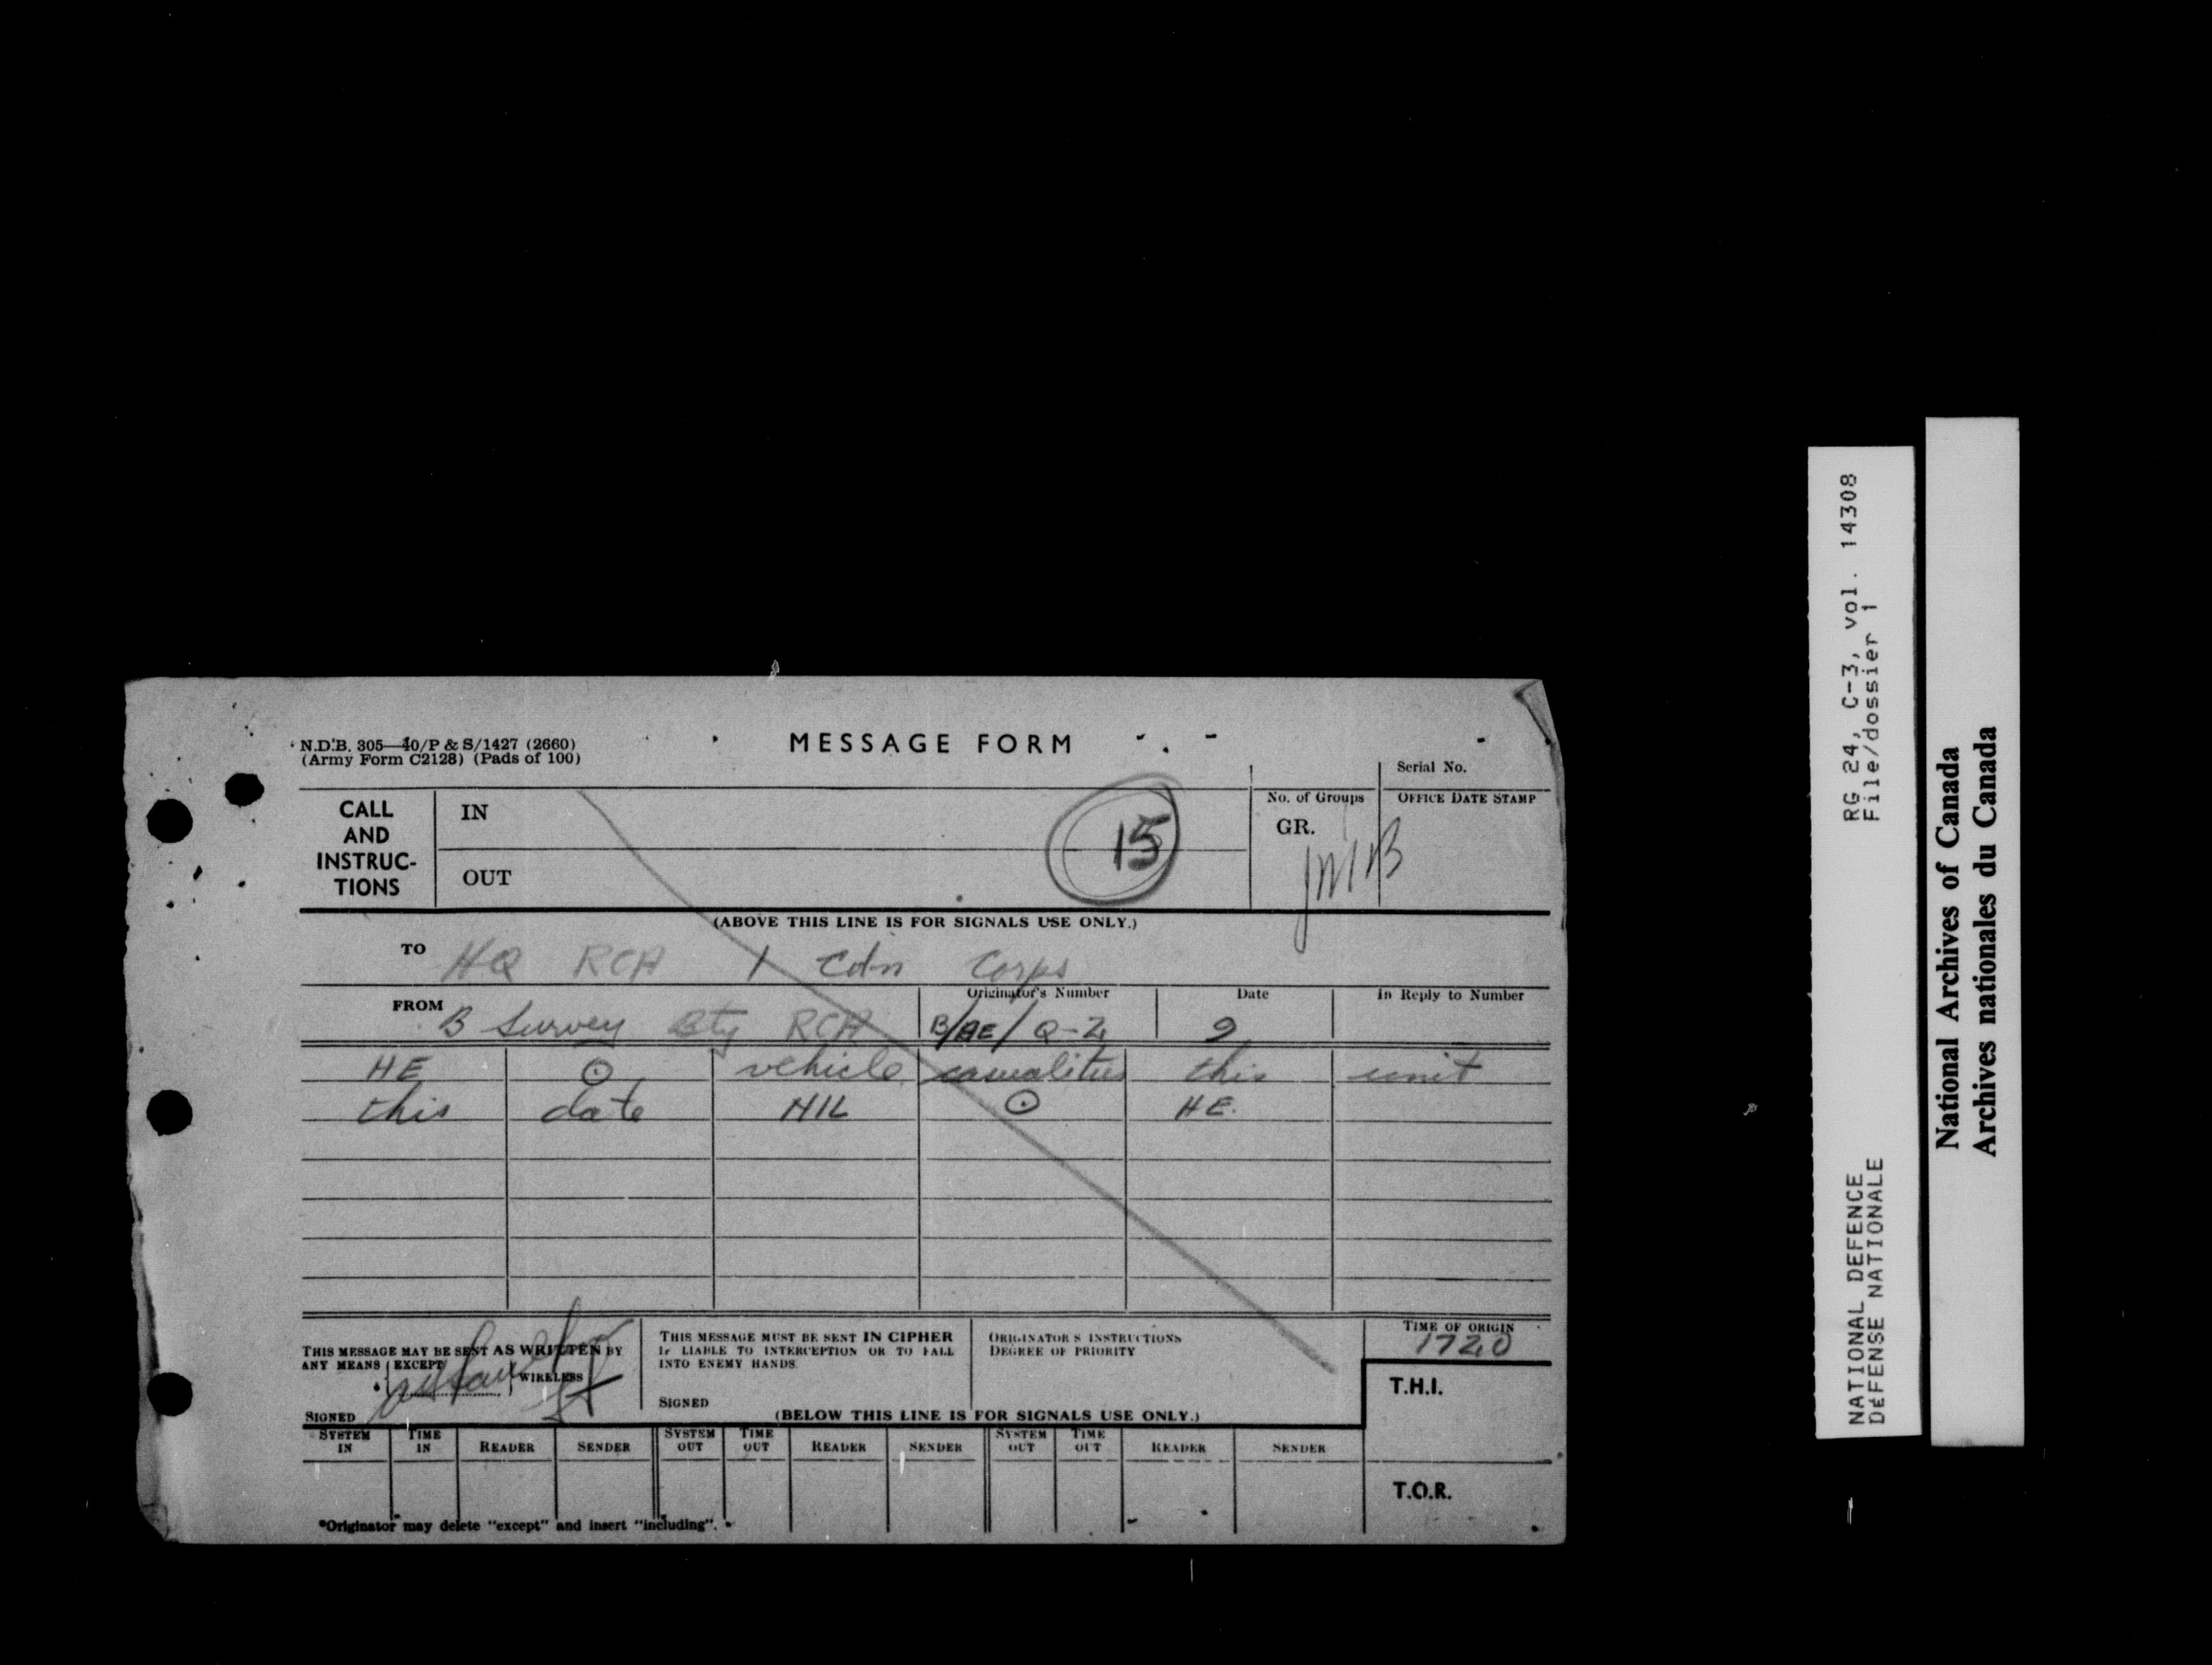 N.D.B. 305—40/P & S/1427 (2660)
(Army Form C2128) (Pads of 100)
MESSAGE FORM
Serial No.
CALL AND INSTRUC-TIONS
IN
OUT
15
No. of Groups
GR.
OFFICE DATE STAMP
(ABOVE THIS LINE IS FOR SIGNALS USE ONLY.)
TO HQ RCA 1 Cdn Corps
FROM B Survey Bty RCA
Originator's Number B/AE/Q-2
Date 9
In Reply to Number
HE ⊙ vehicle casualities this unit
this date NIL ⊙ HE.
THIS MESSAGE MAY BE SENT AS WRITTEN BY
ANY MEANS EXCEPT
WIRELESS
SIGNED
THIS MESSAGE MUST BE SENT IN CIPHER
IF LIABLE TO INTERCEPTION OR TO FALL
INTO ENEMY HANDS.
SIGNED
ORIGINATOR'S INSTRUCTIONS
DEGREE OF PRIORITY
TIME OF ORIGIN
1720
T.H.I.
(BELOW THIS LINE IS FOR SIGNALS USE ONLY.)
SYSTEM IN TIME IN READER SENDER SYSTEM OUT TIME OUT READER SENDER SYSTEM OUT TIME OUT READER SENDER
T.O.R.
*Originator may delete "except" and insert "including".
RG 24, C-3, vol. 14308
File/dossier 1
NATIONAL DEFENCE
DÉFENSE NATIONALE
National Archives of Canada
Archives nationales du Canada